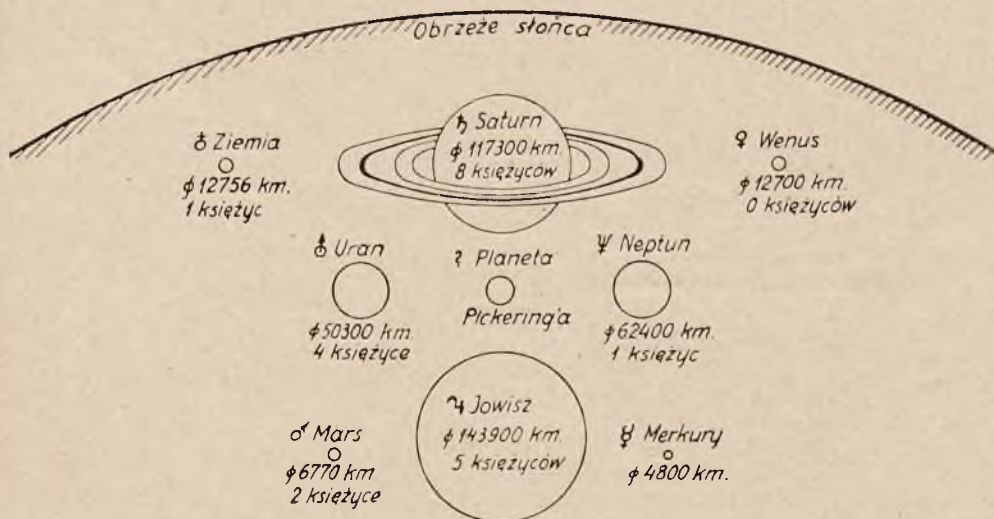 Obrzeże słońca
♁ Ziemia
ϕ 12756 km.
1 księżyc
♄ Saturn
ϕ 117300 km.
8 księżyców
♀ Wenus
ϕ 12700 km.
0 księżyców
⛢ Uran
ϕ 50300 km.
4 księżyce
? Planeta
Pickering'a
♆ Neptun
ϕ 62400 km.
1 księżyc
♂ Mars
ϕ 6770 km
2 księżyce
♃ Jowisz
ϕ 143900 km.
5 księżyców
☿ Merkury
ϕ 4800 km.